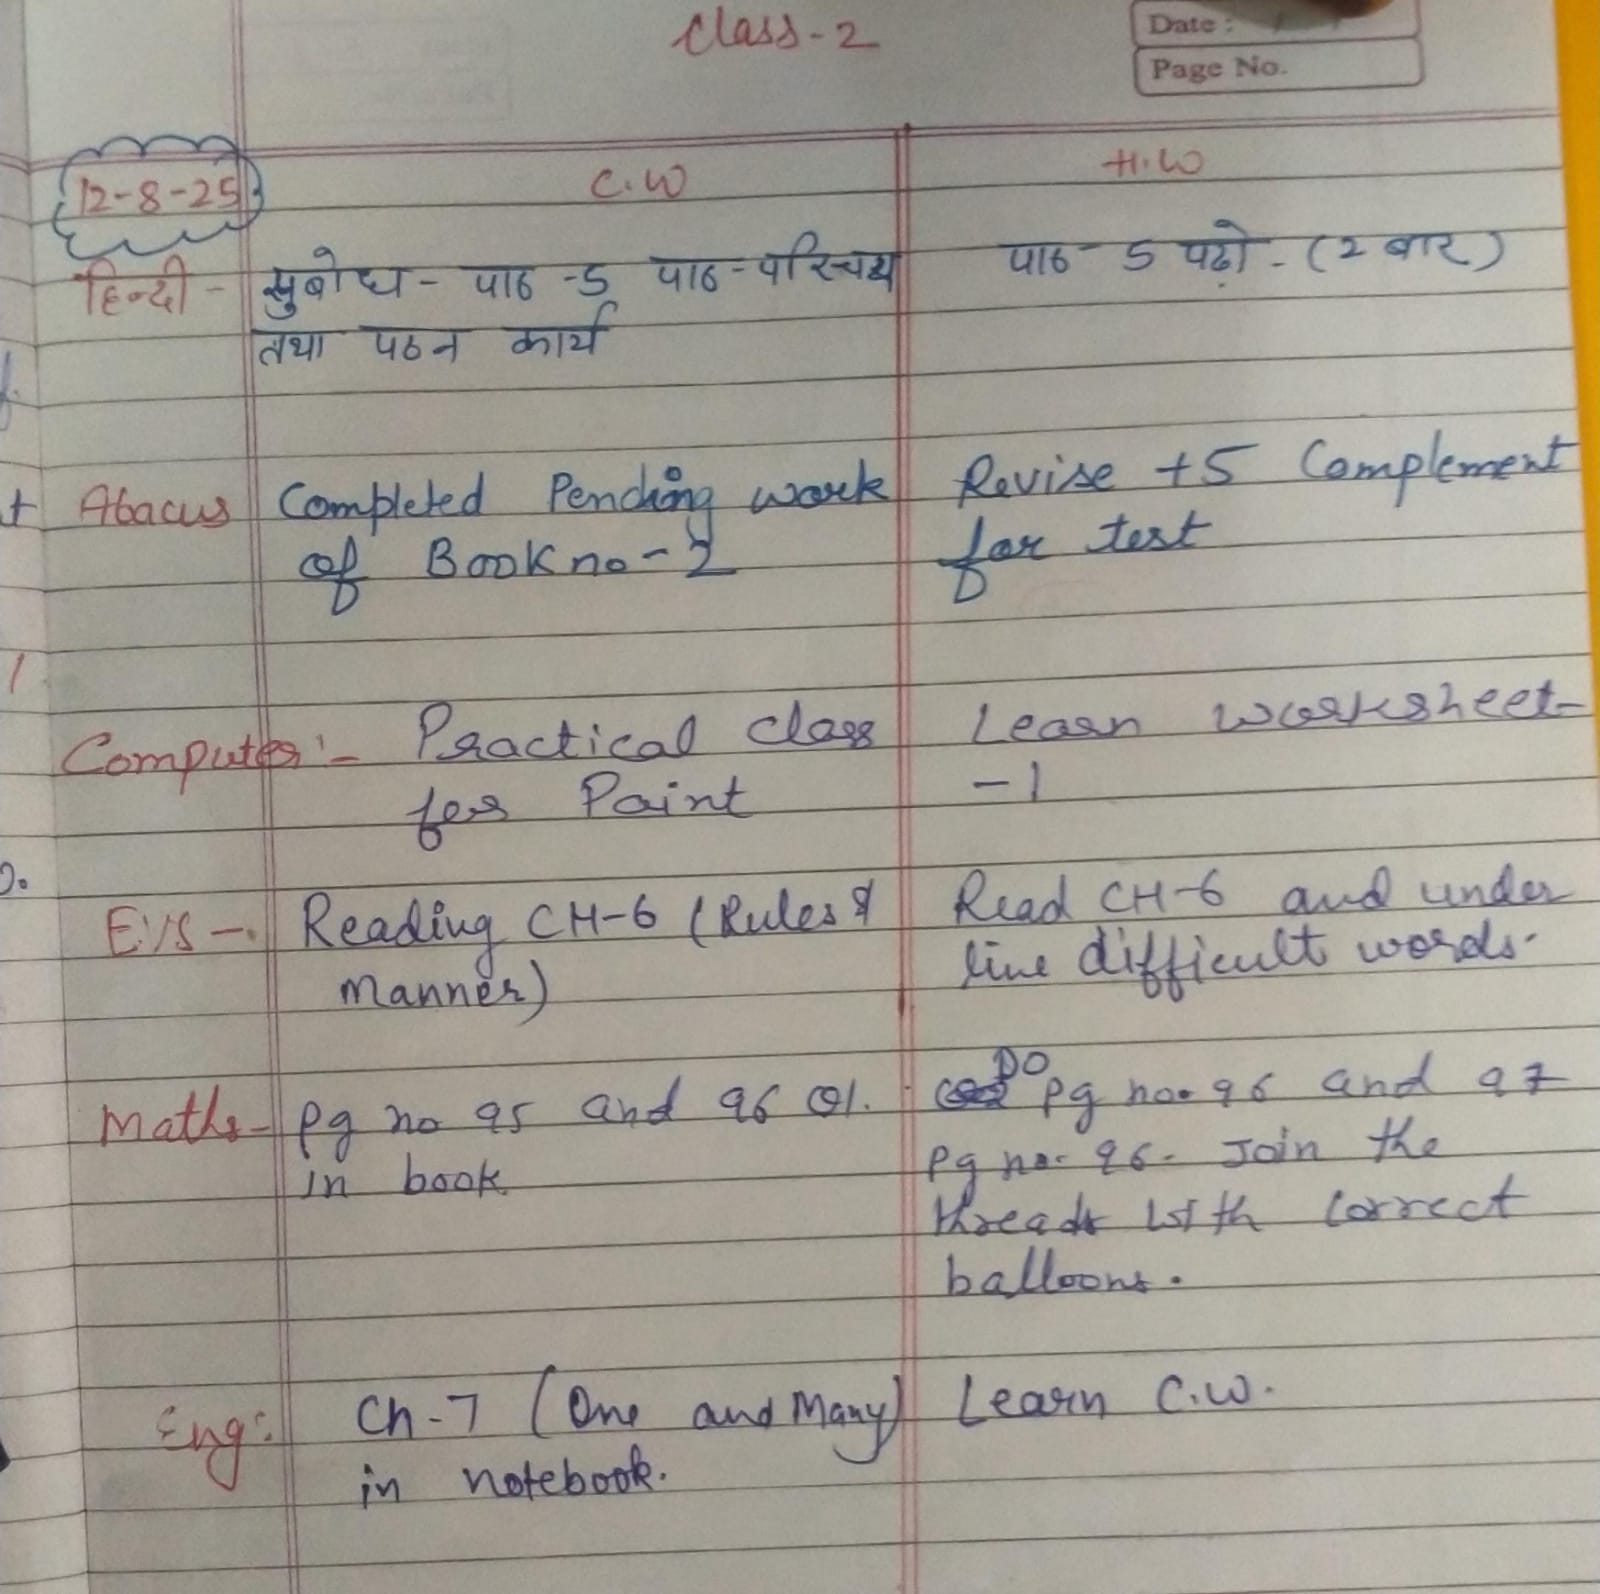 Class-2
Date :
Page No.
12-8-25
C.W
H.W
हिन्दी - सुबोध - पाठ -5 पाठ-परिचय
तथा पठन कार्य
पाठ - 5 पढ़ो - (2 बार)
Abacus Completed Pending work
of Book no-2
Revise +5 Complement
for test
Computer:- Practical class
for Paint
Learn worksheet-
-1
EVS -. Reading CH-6 (Rules &
Manner)
Read CH-6 and under
line difficult words.
Maths- Pg no 95 and 96
in book
DO Pg no. 96 and 97
Pg no. 96. Join the
threads with correct
balloons.
Eng: Ch-7 (One and Many)
in notebook.
Learn C.W.